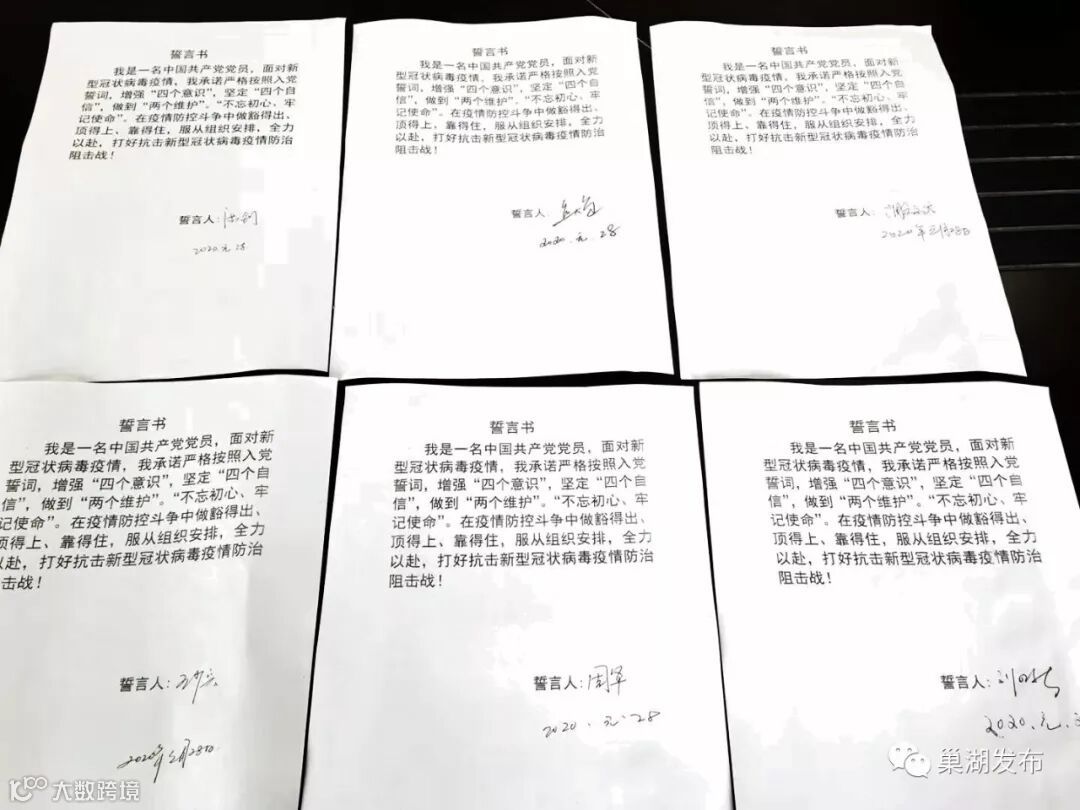 誓言书
我是一名中国共产党党员，面对新
型冠状病毒疫情，我承诺严格按照入党
誓词，增强“四个意识”，坚定“四个自
信”，做到“两个维护”。“不忘初心、牢
记使命”。在疫情防控斗争中做豁得出、
顶得上、靠得住，服从组织安排，全力
以赴，打好抗击新型冠状病毒疫情防治
阻击战！
誓言人：
2020.元.28
誓言书
我是一名中国共产党党员，面对新
型冠状病毒疫情，我承诺严格按照入党
誓词，增强“四个意识”，坚定“四个自
信”，做到“两个维护”。“不忘初心、牢
记使命”。在疫情防控斗争中做豁得出、
顶得上、靠得住，服从组织安排，全力
以赴，打好抗击新型冠状病毒疫情防治
阻击战！
誓言人：
2020.元.28
誓言书
我是一名中国共产党党员，面对新
型冠状病毒疫情，我承诺严格按照入党
誓词，增强“四个意识”，坚定“四个自
信”，做到“两个维护”。“不忘初心、牢
记使命”。在疫情防控斗争中做豁得出、
顶得上、靠得住，服从组织安排，全力
以赴，打好抗击新型冠状病毒疫情防治
阻击战！
誓言人：
2020年元月28日
誓言书
我是一名中国共产党党员，面对新
型冠状病毒疫情，我承诺严格按照入党
誓词，增强“四个意识”，坚定“四个自
信”，做到“两个维护”。“不忘初心、牢
记使命”。在疫情防控斗争中做豁得出、
顶得上、靠得住，服从组织安排，全力
以赴，打好抗击新型冠状病毒疫情防治
阻击战！
誓言人：
2020年元月28日
誓言书
我是一名中国共产党党员，面对新
型冠状病毒疫情，我承诺严格按照入党
誓词，增强“四个意识”，坚定“四个自
信”，做到“两个维护”。“不忘初心、牢
记使命”。在疫情防控斗争中做豁得出、
顶得上、靠得住，服从组织安排，全力
以赴，打好抗击新型冠状病毒疫情防治
阻击战！
誓言人：周军
2020.元.28
誓言书
我是一名中国共产党党员，面对新
型冠状病毒疫情，我承诺严格按照入党
誓词，增强“四个意识”，坚定“四个自
信”，做到“两个维护”。“不忘初心、牢
记使命”。在疫情防控斗争中做豁得出、
顶得上、靠得住，服从组织安排，全力
以赴，打好抗击新型冠状病毒疫情防治
阻击战！
誓言人：
2020.元.2
巢湖发布
大数跨境